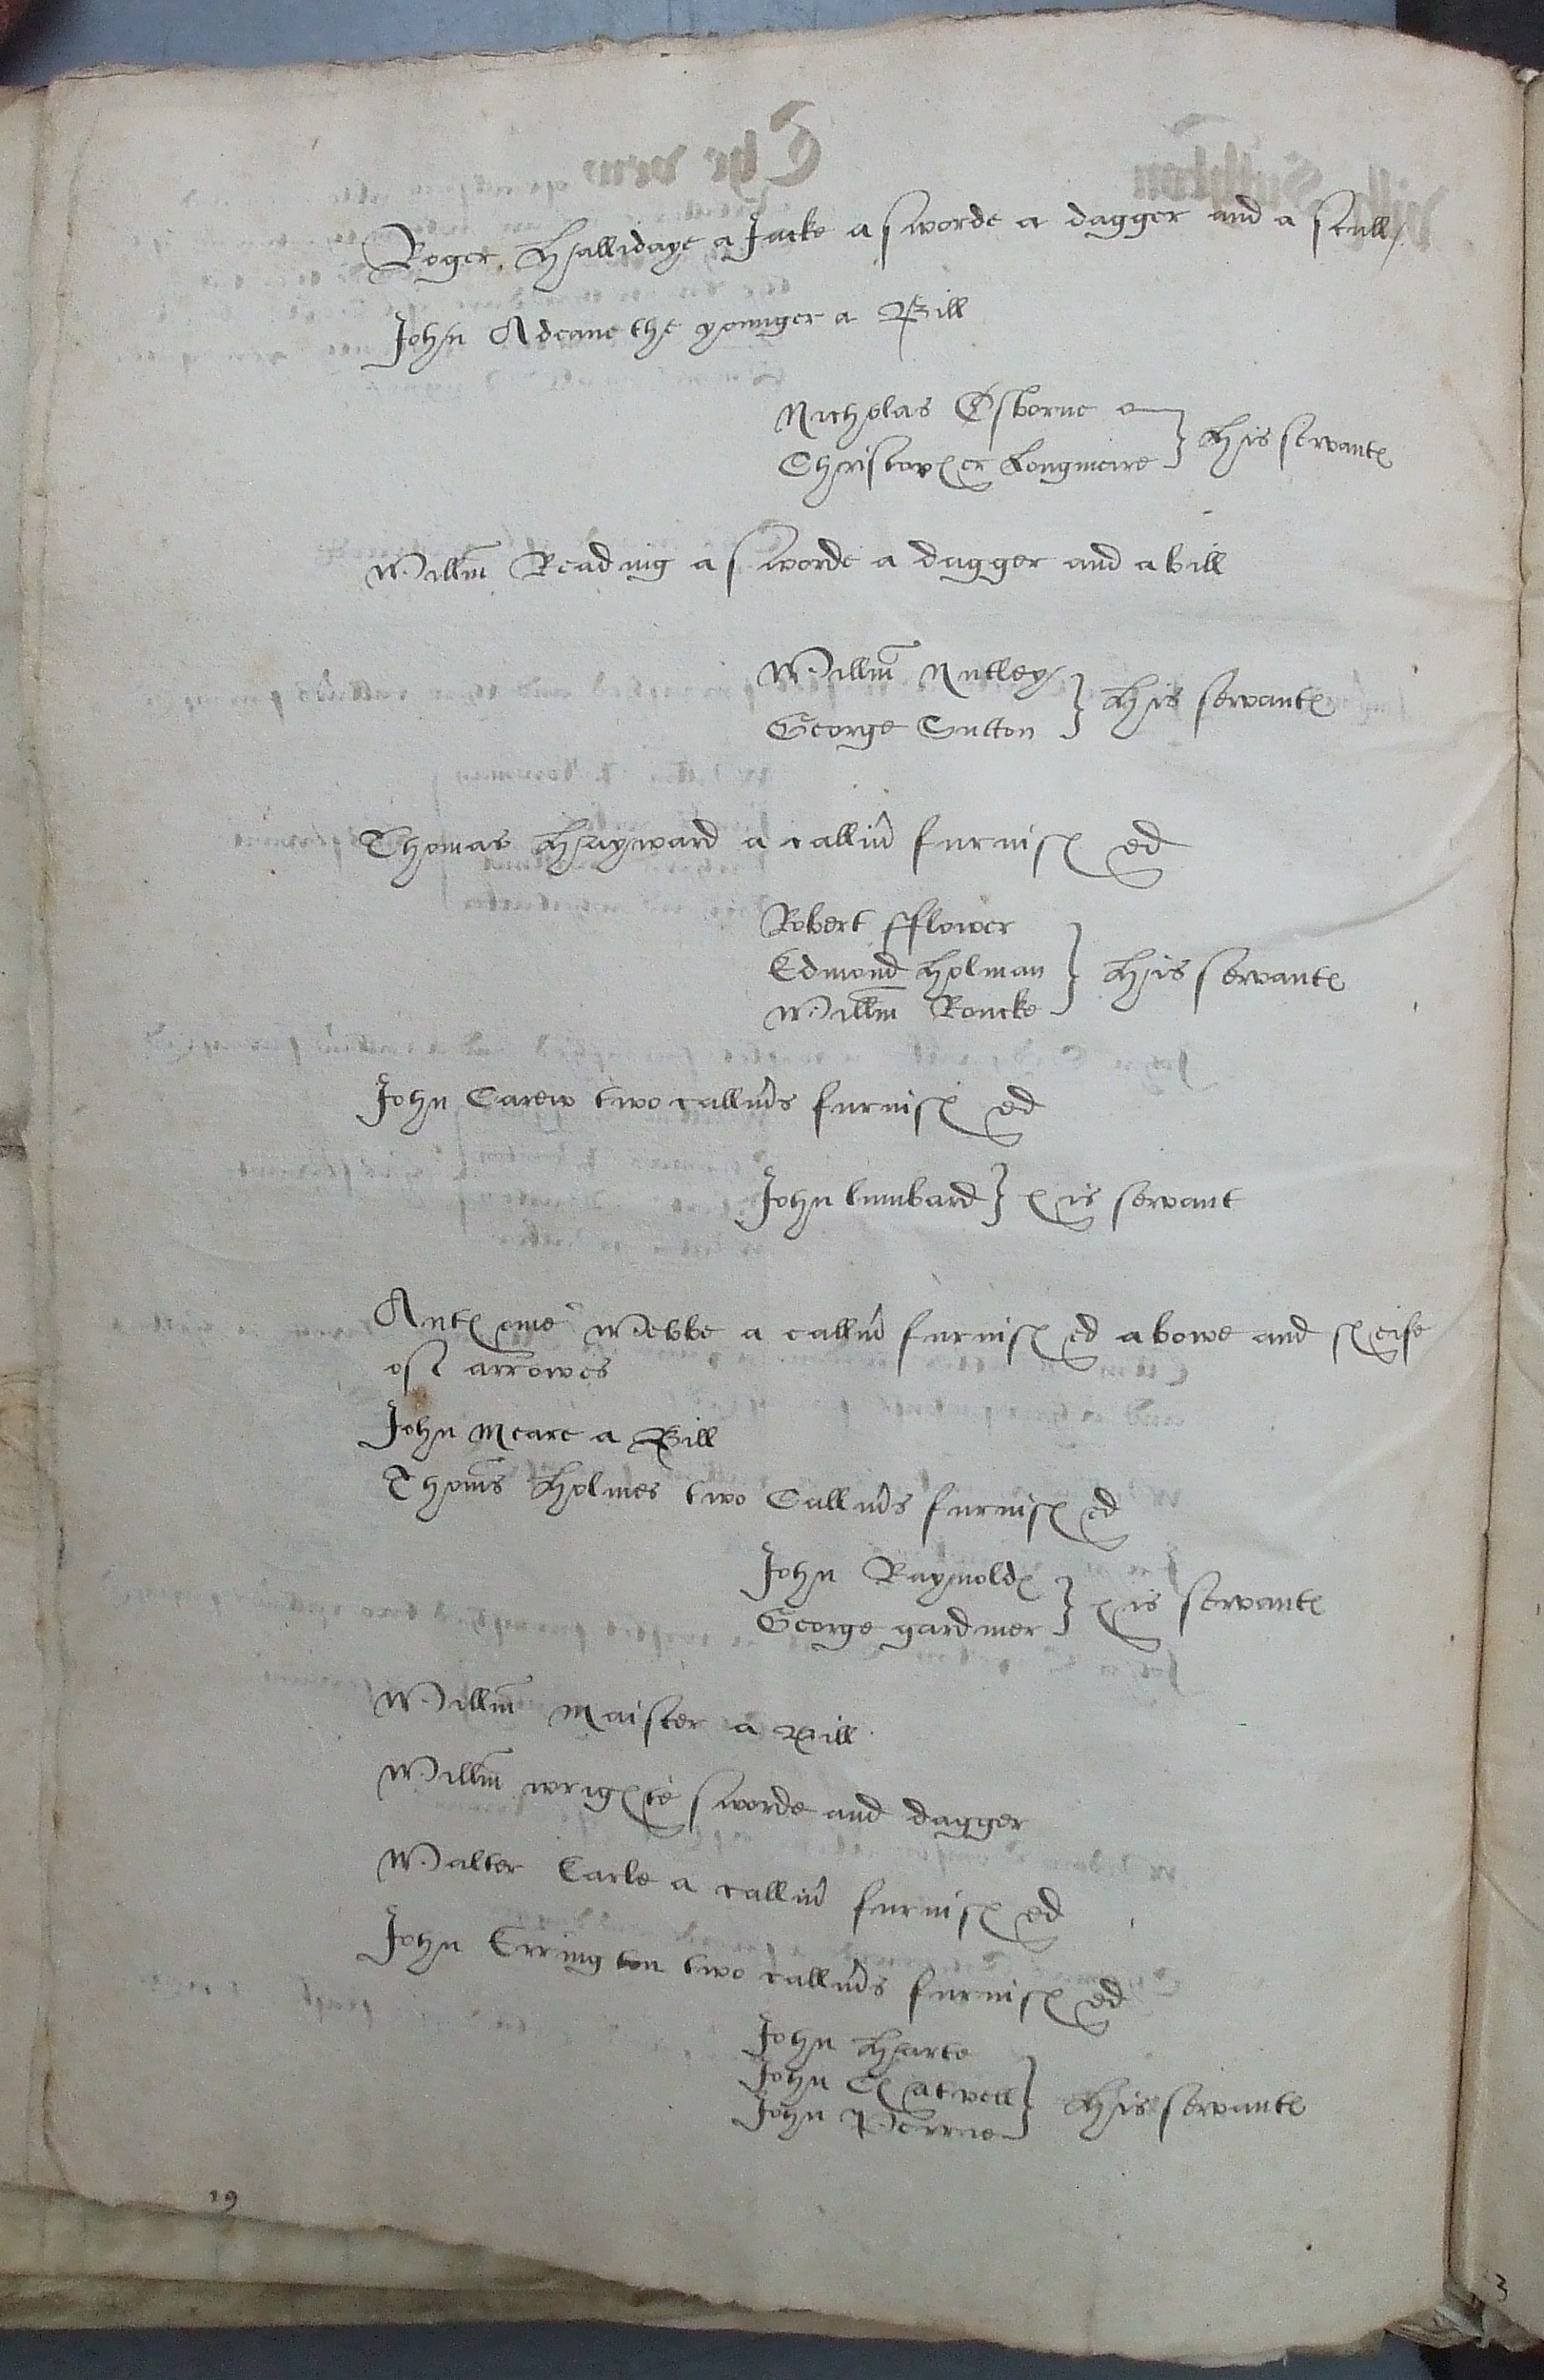 Roger Hallidaye a Jacke a sworde a dagger and a scull
John Adeane the younger a Bill
Nicholas Osborne
Christopher Longmeire } his servantes
Willm Reading a sworde a dagger and a bill
Willm Nutley
George Sutton } his servantes
Thomas Hayward a callivr furnished
Robert fflower
Edmond Holman } his servantes
Willm Roucke
John Carew two callivrs furnished
John Lumbard } his servant
Anthonie Webbe a callivr furnished a bowe and sheife
of arrowes
John Meare a Bill
Thoms Holmes two Callivrs furnished
John Raynoldes
George gardiner } his servantes
Willm Maister a Bill
Willm wrighte sworde and dagger
Walter Earle a callivr furnished
John Errington two callivrs furnished
John Harte
John Chatwell } his servantes
John Perrne
19
3